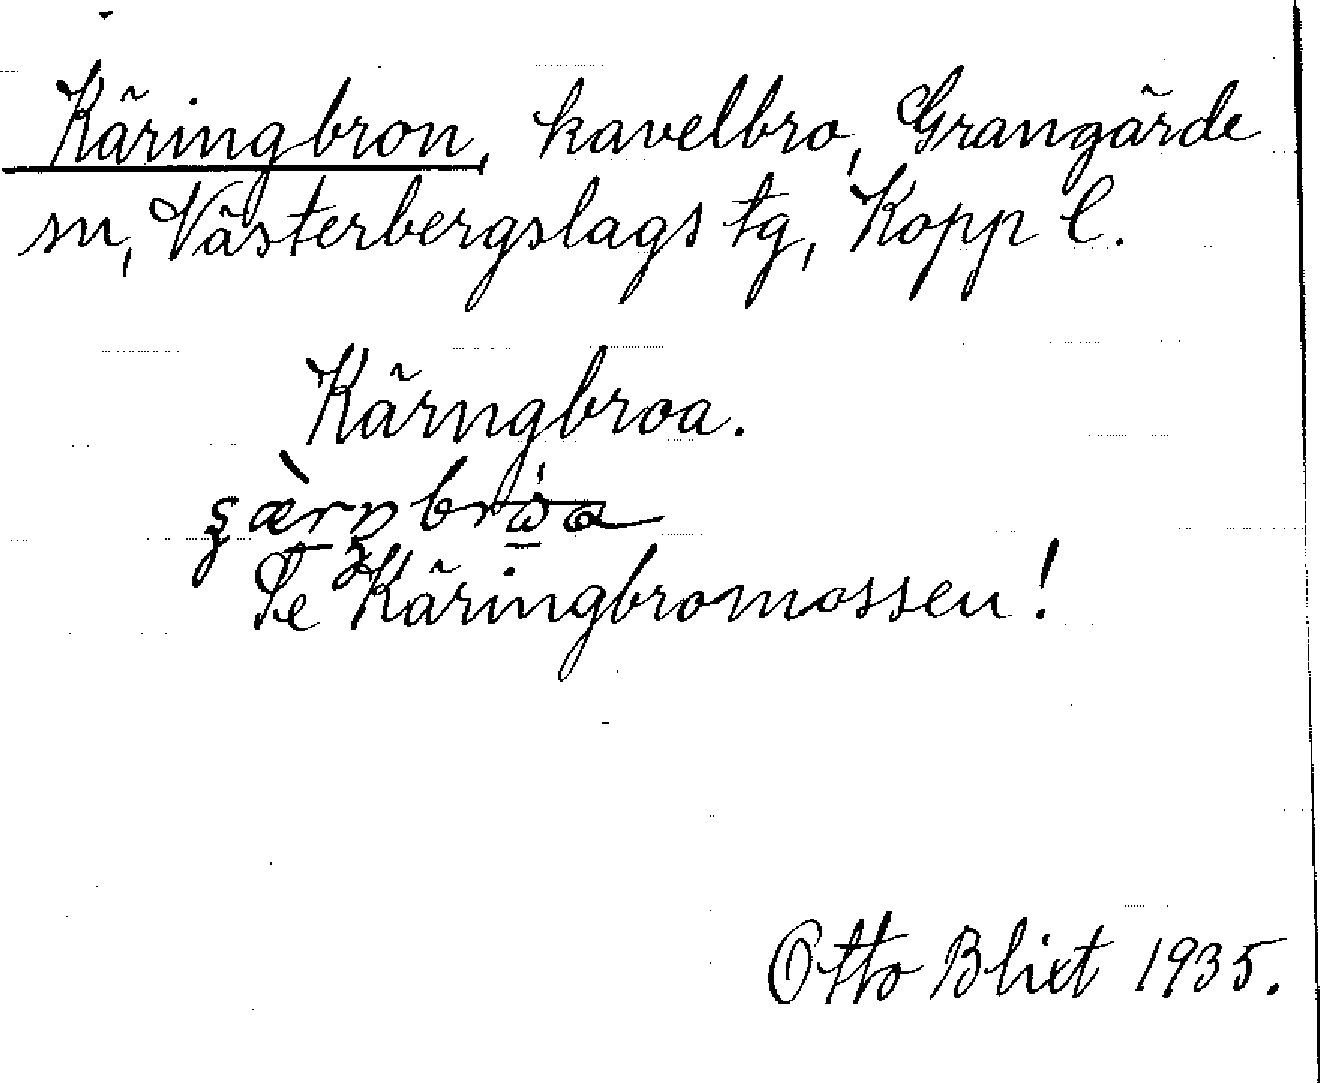 Käringbron, kavelbro, Grangärde
sn, Västerbergslags tg, Kopp l.
Kärngbroa.
Se Käringbromossen!
Otto Blixt 1935.